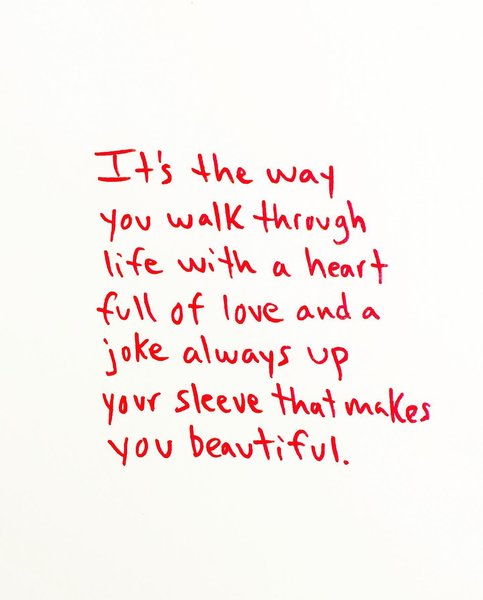 It's the way
you walk through
life with a heart
full of love and a
joke always up
your sleeve that makes
you beautiful.